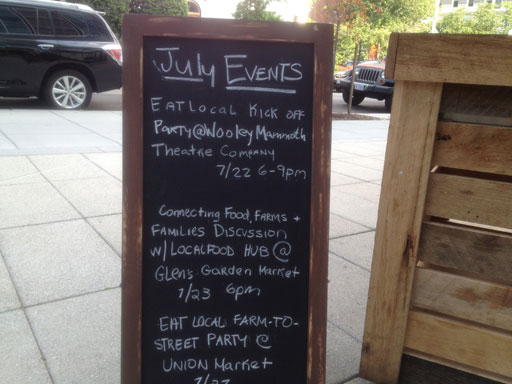 July Events
Eat Local Kick off
Party@Woolley Mammoth
Theatre Company
7/22 6-9pm
Connecting Food, Farms +
Families Discussion
w/ Local Food Hub @
Glen's Garden Market
7/23 6pm
Eat Local Farm-to-
Street Party @
Union Market
7/27